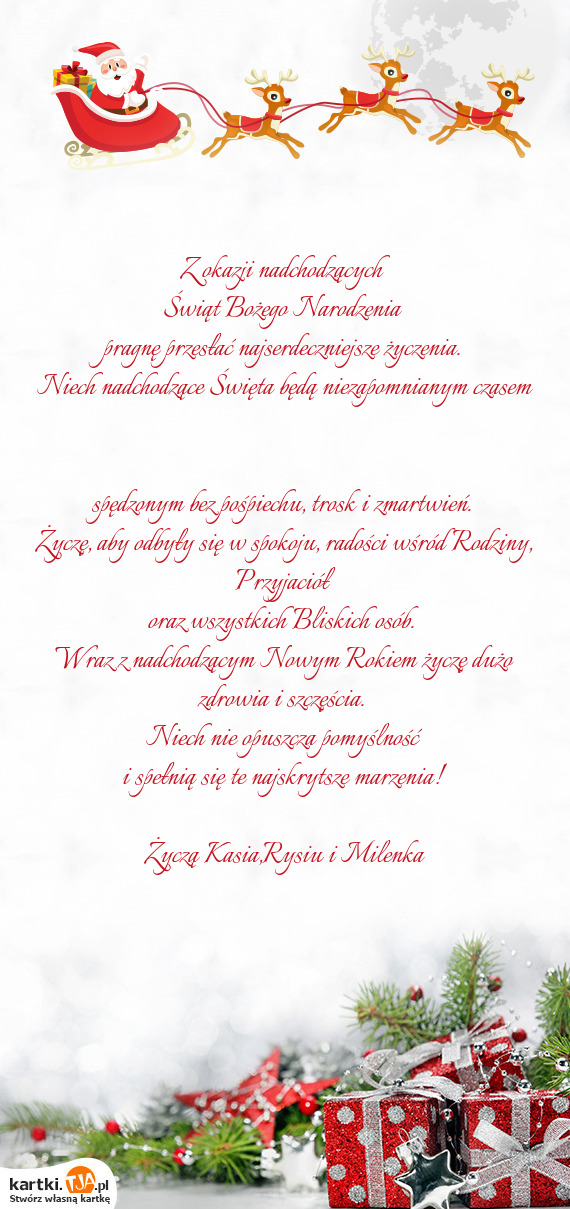 Z okazji nadchodzących
Świąt Bożego Narodzenia
pragnę przesłać najserdeczniejsze życzenia.
Niech nadchodzące Święta będą niezapomnianym czasem
spędzonym bez pośpiechu, trosk i zmartwień.
Życzę, aby odbyły się w spokoju, radości wśród Rodziny,
Przyjaciół
oraz wszystkich Bliskich osób.
Wraz z nadchodzącym Nowym Rokiem życzę dużo
zdrowia i szczęścia.
Niech nie opuszcza pomyślność
i spełnią się te najskrytsze marzenia!
Życzą Kasia,Rysiu i Milenka
kartki.TJA.pl
Stwórz własną kartkę